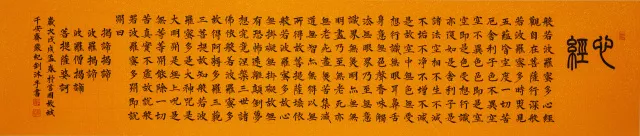 心經
般若波羅蜜多心經
觀自在菩薩行深般
若波羅蜜多時照見
五蘊皆空度一切苦
厄舍利子色不異空
空不異色色即是空
空即是色受想行識
亦復如是舍利子是
諸法空相不生不滅
不垢不淨不增不減
是故空中無色無受
想行識無眼耳鼻舌
身意無色聲香味觸
法無眼界乃至無意
識界無無明亦無無
明盡乃至無老死亦
無老死盡無苦集滅
道無智亦無得以無
所得故菩提薩埵依
般若波羅蜜多故心
無罣礙無罣礙故無
有恐怖遠離顛倒夢
想究竟涅槃三世諸
佛依般若波羅蜜多
故得阿耨多羅三藐
三菩提故知般若波
羅蜜多是大神咒是
大明咒是無上咒是
無等等咒能除一切
苦真實不虛故說般
若波羅蜜多咒即說
咒曰
揭諦揭諦
波羅揭諦
波羅僧揭諦
菩提薩婆訶
歲次戊戌孟春